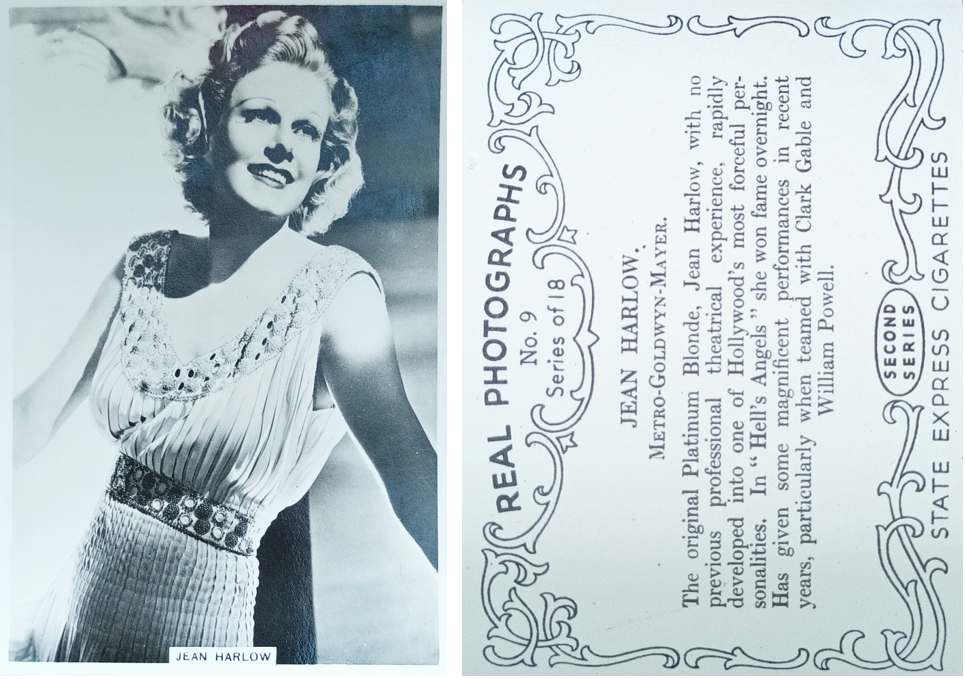 JEAN HARLOW
REAL PHOTOGRAPHS
No. 9
Series of 18
JEAN HARLOW.
METRO-GOLDWYN-MAYER.
The original Platinum Blonde, Jean Harlow, with no
previous professional theatrical experience, rapidly
developed into one of Hollywood's most forceful per-
sonalities. In "Hell's Angels" she won fame overnight.
Has given some magnificent performances in recent
years, particularly when teamed with Clark Gable and
William Powell.
SECOND
SERIES
STATE EXPRESS CIGARETTES